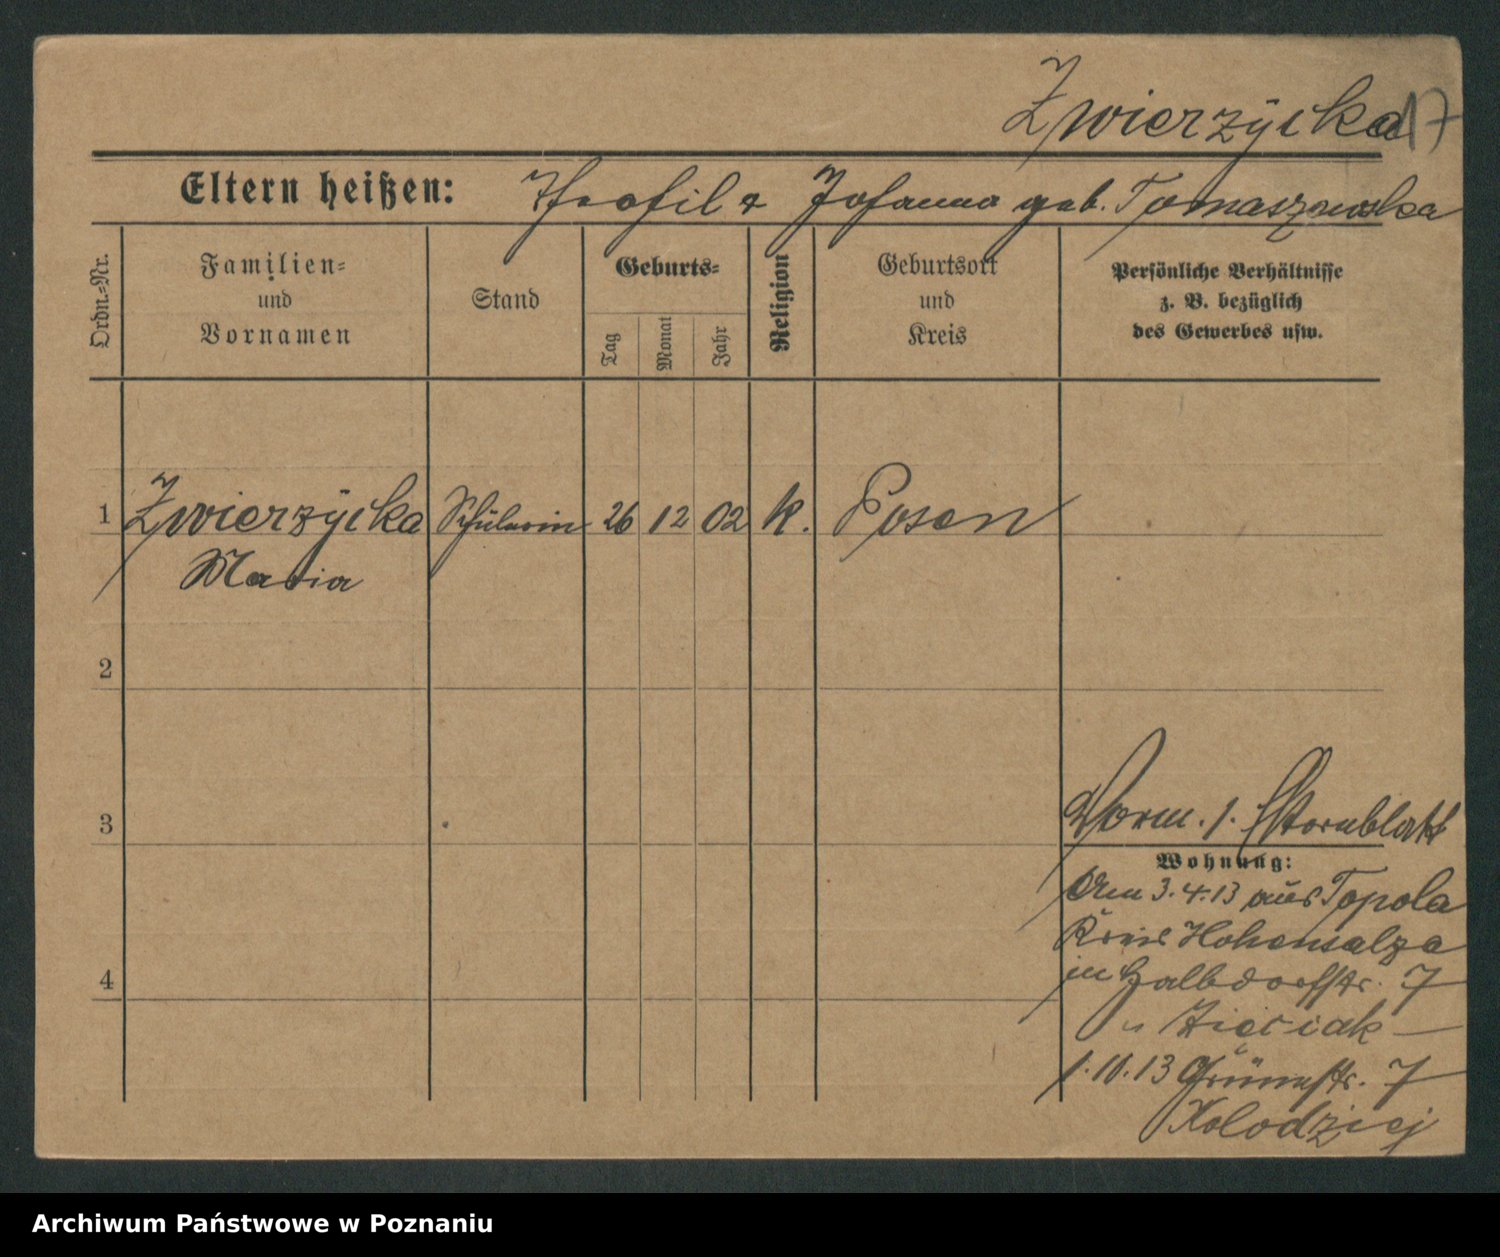 Zwierzÿcka 17
Eltern heißen: Theofil & Johanna geb. Tomaszewska
Ordn.=Nr.
Familien=
und
Vornamen
Stand
Geburts=
Tag
Monat
Jahr
Religion
Geburtsort
und
Kreis
Persönliche Verhältnisse
z. B. bezüglich
des Gewerbes usw.
1 Zwierzÿcka Schülerin 26 12 02 k. Posen
Maria
2
3
Vorm. s. Stornblatt
Wohnung:
Am 3.4.13 aus Topola
Kreis Hohensalza
4
in Halbdorfstr. 7
1.10.13 Grünestr. 7
Kolodziej
Archiwum Państwowe w Poznaniu